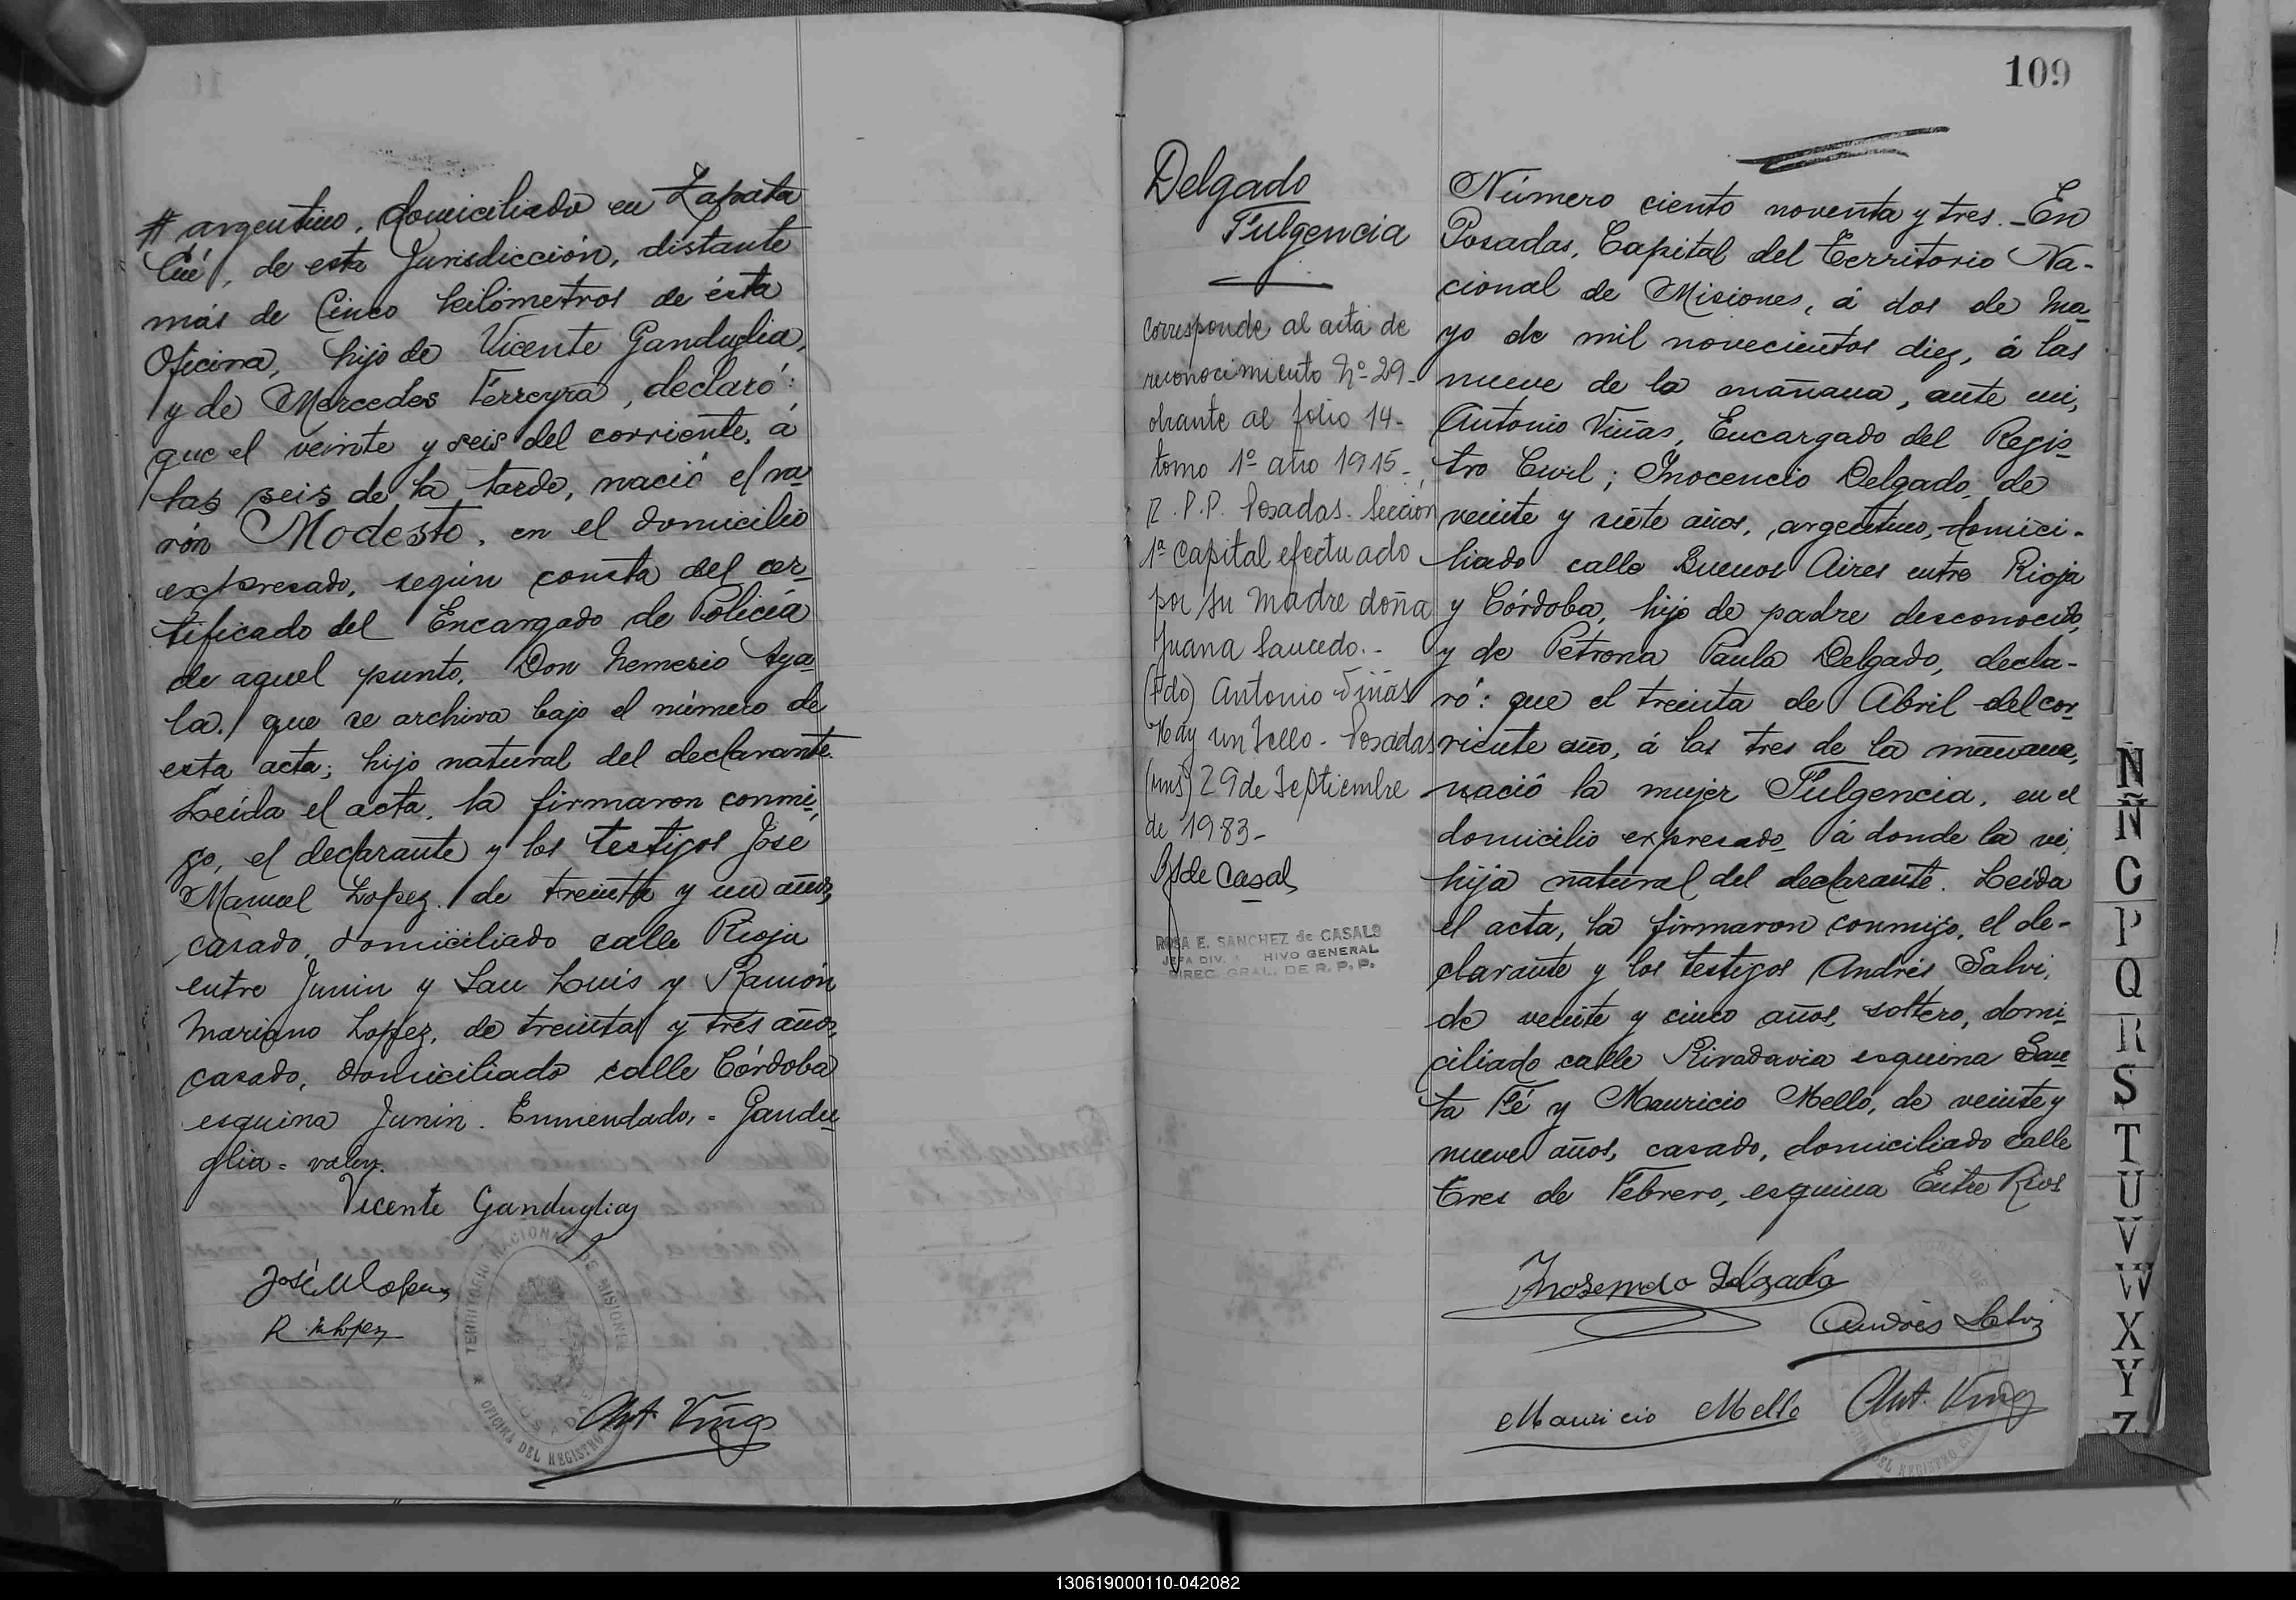 # argentino, domiciliado en Zapata
Cué, de esta Jurisdicción, distante
más de Cinco kilómetros de ésta
Oficina, hijo de Vicente Ganduglia,
y de Mercedes Ferreyra, declaró:
que el veinte y seis del corriente, á
las seis de la tarde, nació el va-
rón Modesto, en el domicilio
expresado, según consta del cer-
tificado del Encargado de Policía
de aquel punto, Don Nemesio Aya-
la, que se archiva bajo el número de
esta acta; hijo natural del declarante.
Leída el acta, la firmaron conmi-
go, el declarante y los testigos José
Manuel Lopez, de treinta y un años,
casado, domiciliado calle Rioja
entre Junin y San Luis y Ramón
Mariano Lopez, de treinta y tres años,
casado, domiciliado calle Córdoba
esquina Junin. Enmendado, = Gandu-
glia = vale.
Vicente Ganduglia
José M Lopez
R. M Lopez
TERRITORIO NACIONAL DE MISIONES
OFICINA DEL REGISTRO
Ant. Viñas
109
Delgado
Fulgencia
Corresponde al acta de
reconocimiento Nº 29-
obrante al folio 14-
tomo 1º año 1915-,
R.P.P. Posadas. Sección
1ª Capital efectuado
por su madre doña
Juana Saucedo.-
(Fdo) Antonio Viñas
Hay un Sello - Posadas
(mns) 29 de Septiembre
de 1983-
de Casals
ROSA E. SANCHEZ de CASALS
JEFA DIV. ARCHIVO GENERAL
DIREC. GRAL. DE R. P. P.
Número ciento noventa y tres. - En
Posadas, Capital del Territorio Na-
cional de Misiones, á dos de Ma-
yo de mil novecientos diez, á las
nueve de la mañana, ante mi,
Antonio Viñas, Encargado del Regis-
tro Civil; Inocencio Delgado, de
veinte y siete años, argentino, domici-
liado calle Buenos Aires entre Rioja
y Córdoba, hijo de padre desconocido,
y de Petrona Paula Delgado, decla-
ró: que el treinta de Abril del cor-
riente año, á las tres de la mañana,
nació la mujer Fulgencia, en el
domicilio expresado á donde la vi,
hija natural del declarante. Leída
el acta, la firmaron conmigo, el de-
clarante y los testigos Andrés Salvi,
de veinte y cinco años, soltero, domi-
ciliado calle Rivadavia esquina San-
ta Fé y Mauricio Mello, de veinte y
nueve años, casado, domiciliado calle
Tres de Febrero, esquina Entre Rios
Inosensio Delgado
Andrés Salvi
Mauricio Mello
Ant. Viñas
N
Ñ
O
P
Q
R
S
T
U
V
W
X
Y
Z
130619000110-042082